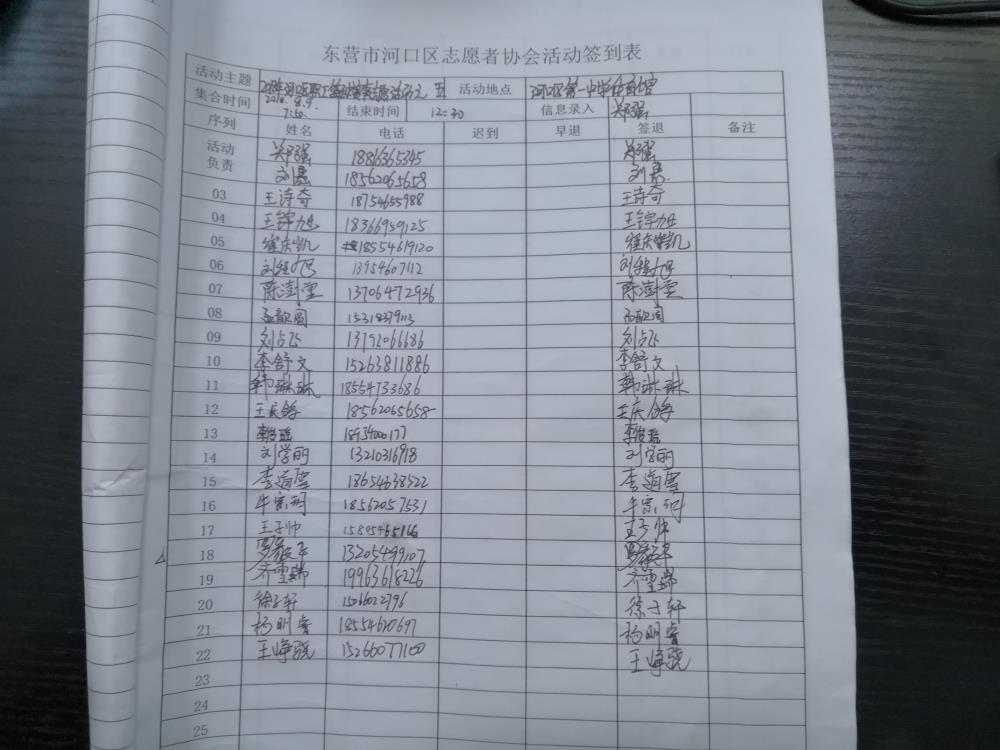 东营市河口区志愿者协会活动签到表
活动主题 活动地点 河口区第一中学体育馆
集合时间 2018.8.9. 7:50. 结束时间 12:30 信息录入 郑强
序列 姓名 电话 迟到 早退 签退 备注
活动负责 郑强 1886365345 郑强
刘慧 18562065658 刘慧
03 王诗奇 18754655988 王诗奇
04 王锦旭 18366959125 王锦旭
05 崔庆凯 18554619120 崔庆凯
06 刘程旭 13954607112 刘程旭
07 陈澍堂 13706472936 陈澍堂
08 孟歆圆
09 刘占飞 13792066686 刘占飞
10 李舒文 15263811886 李舒文
11 韩琳琳 18554733686 韩琳琳
12 王庆铮 18562065658 王庆铮
13 18954000177
14 刘学丽 13210316918 刘学丽
15 李道雪 18654638522 李道雪
16 牛宗珂 18562057531 牛宗珂
17 王子帅 王子帅
18 13205499107
19 齐雪瑞 19963618226 齐雪瑞
20 徐子轩 1506022796 徐子轩
21 杨明睿 18554610697 杨明睿
22 王峥骁 15266077100 王峥骁
23
24
25